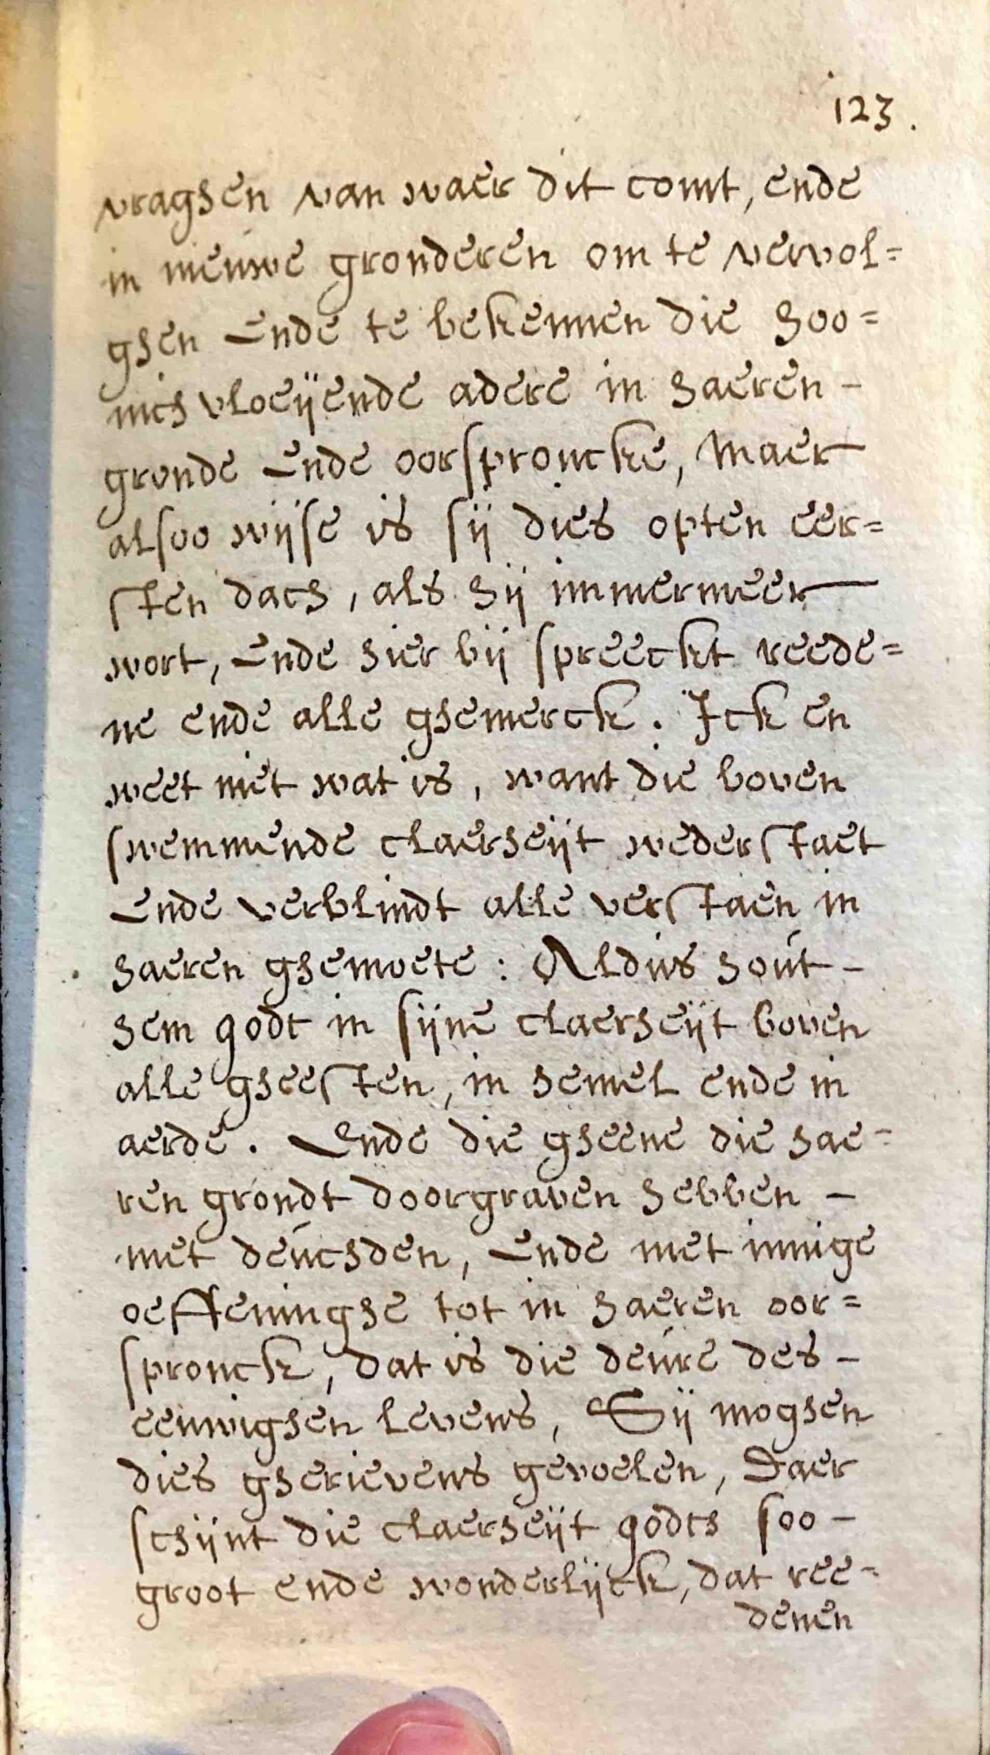 123.
vraghen van waer dit comt, ende
in nieuwe gronderen om te vervol=
ghen Ende te bekennen die hoo=
nich vloeÿende adere in haeren –
gronde Ende oorsproncke, Maer
alsoo wijse is sij dies opten eer=
sten dach, als hij immermeer
wort, Ende hier bij spreeckt reede=
ne ende alle ghemerck. Ick en
weet niet wat is, want die boven
swemmende claerheijt wederstaet
Ende verblindt alle verstaen in
haeren ghemoete: Aldus hout –
hem godt in sijne claerheijt boven
alle gheesten, in hemel ende in
aerde. Ende die gheene die hae=
ren grondt doorgraven hebben –
met deuchden, Ende met innige
oeffeninghe tot in haeren oor=
spronck, dat is die deure des –
eeuwighen levens, Sij moghen
dies gherievens gevoelen, Daer
schijnt die claerheijt godts soo –
groot ende wonderlijck, dat ree=
denen